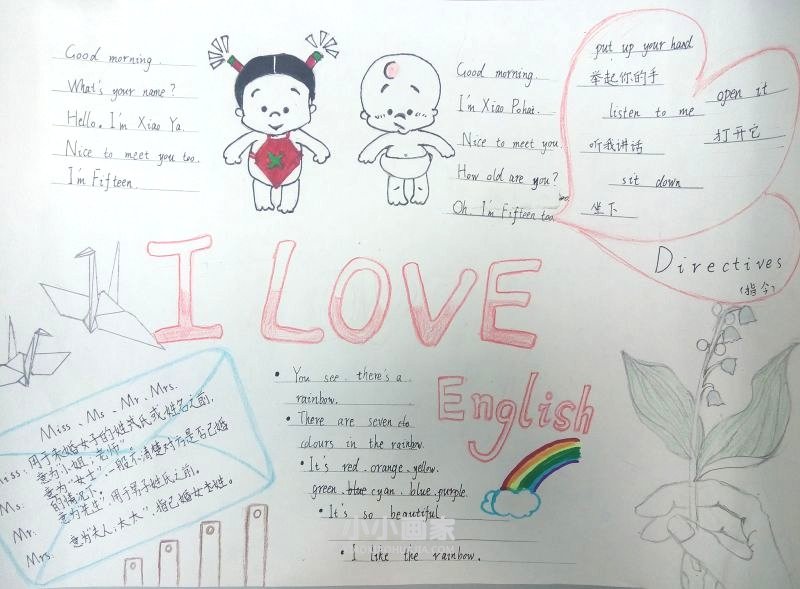 Good morning.
What's your name?
Hello. I'm Xiao Ya.
Nice to meet you too.
I'm Fifteen.
Good morning.
I'm Xiao Pohai.
Nice to meet you.
How old are you?
Oh. I'm Fifteen too.
put up your hand
举起你的手
listen to me
听我讲话
sit down
坐下
open it
打开它
Directives
(指令)
I LOVE
English
Miss、Ms、Mr、Mrs.
Miss: 用于未婚女子的姓式或姓名之前,
意为"小姐,老师"。
Ms: 意为"女士"一般不清楚对方是否已婚
的情况下。
Mr: 意为先生,用于男子姓氏之前。
Mrs: 意为"夫人,太太",指已婚女夫姓。
• You see, there's a
rainbow.
• There are seven
colours in the rainbow.
• It's red、orange、yellow、
green、blue cyan、blue、purple.
• It's so beautiful.
• I like the rainbow.
小小画家